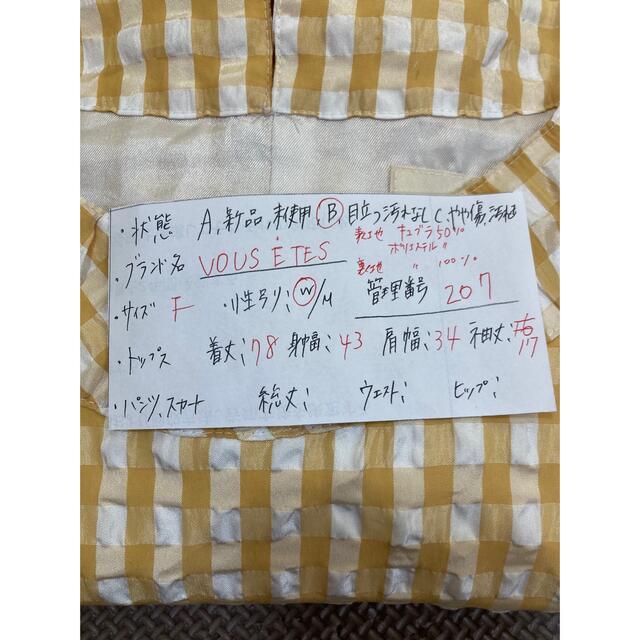 ・状態 A,新品,未使用,B,目立つ汚れなしC,やや傷,汚れ
表地 キュプラ50%
ポリエステル〃
・ブランド名 VOUS ÊTES
裏地 〃 100%
・サイズ F ・性別; W/M 管理番号 207
・トップス 着丈;78 身幅;43 肩幅;34 袖丈;17
・パンツ,スカート 総丈; ウエスト; ヒップ;